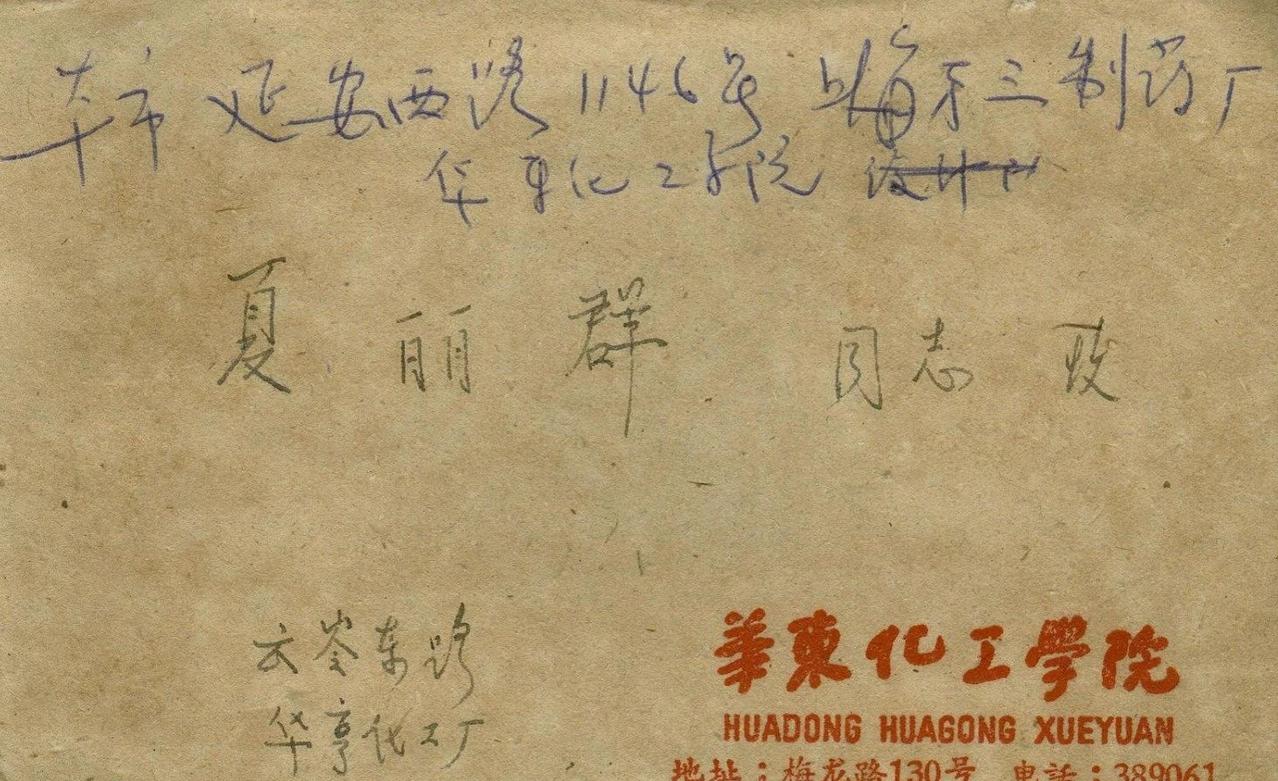 本市 延安西路1146号 上海第三制药厂
华东化工学院
夏丽群 同志 收
云岭东路
华亨化工厂
華東化工學院
HUADONG HUAGONG XUEYUAN
地址：梅龙路130号 电話：389061